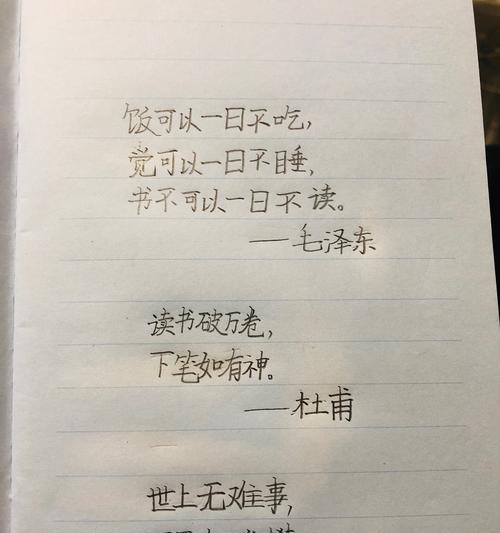 饭可以一日不吃，
觉可以一日不睡，
书不可以一日不读。
——毛泽东
读书破万卷，
下笔如有神。
——杜甫
世上无难事，